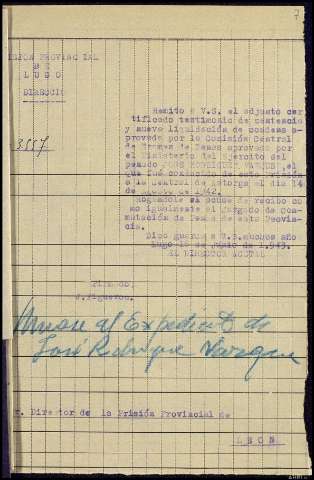 7
PRISION PROVINCIAL
DE
LUGO
DIRECCIO
3557
Remito a V.S. el adjunto cer
tificado testimonio de sentencia
y nueva liquidación de condena a-
probada por la Comisión Central
de Examen de Penas aprobada por
el Ministerio del Ejercito del
penado JOSE RODRIGUEZ VARGUE, el
que fué conducido de esta prisión
a la Central de Astorga el dia 14
de agosto de 1942.
Rogandole se acuse de recibo co
mo igualmente al Juzgado de Con-
mutación de Pena de esta Provin-
cia.
Dios guarde a V.S. muchos año
Lugo 15 de Junio de 1.943.
EL DIRECTOR ACCTAL
FIRMADO.
J. Figueroa.
Unase al Expediente de
José Rodriguez Vargue
r. Director de la Prisión Provincial de
LEON